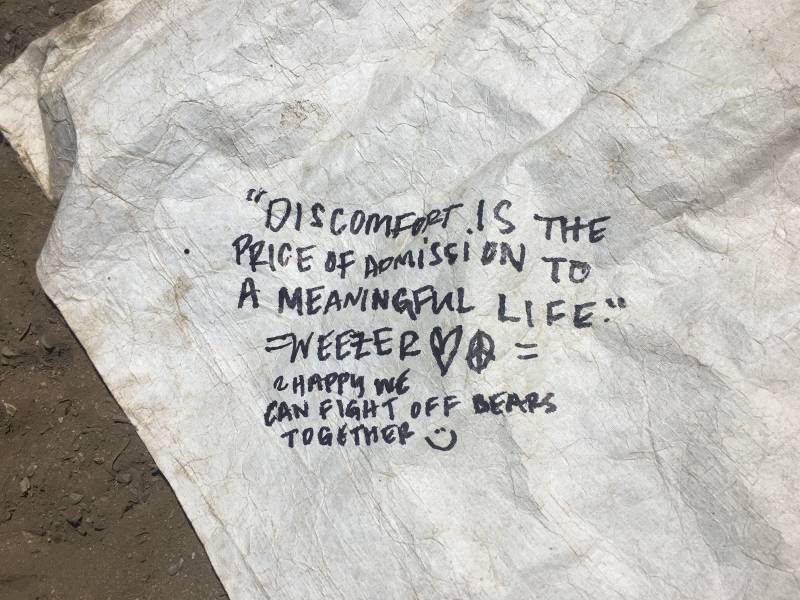 "DISCOMFORT IS THE
PRICE OF ADMISSION TO
A MEANINGFUL LIFE."
=WEEZER ♡☮ =
HAPPY WE
CAN FIGHT OFF BEARS
TOGETHER :)